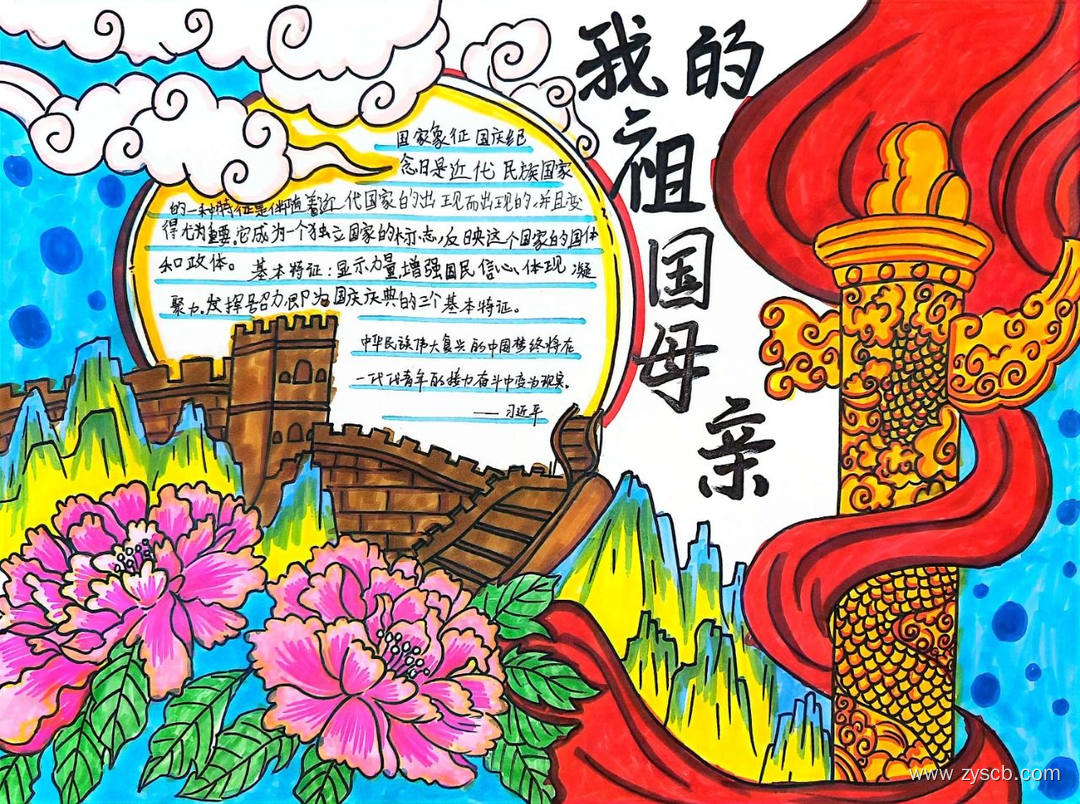 我的
祖
国
母
亲
国家象征 国庆纪
念日是近代民族国家
的一种特征是伴随着近代国家的出现而出现的,并且变
得尤为重要。它成为一个独立国家的标志,反映这个国家的国体
和政体。 基本特征:显示力量增强国民信心,体现凝
聚力,发挥号召力,即为国庆庆典的三个基本特征。
中华民族伟大复兴的中国梦终将在
一代代青年的接力奋斗中变为现实。
——习近平
www.zyscb.com